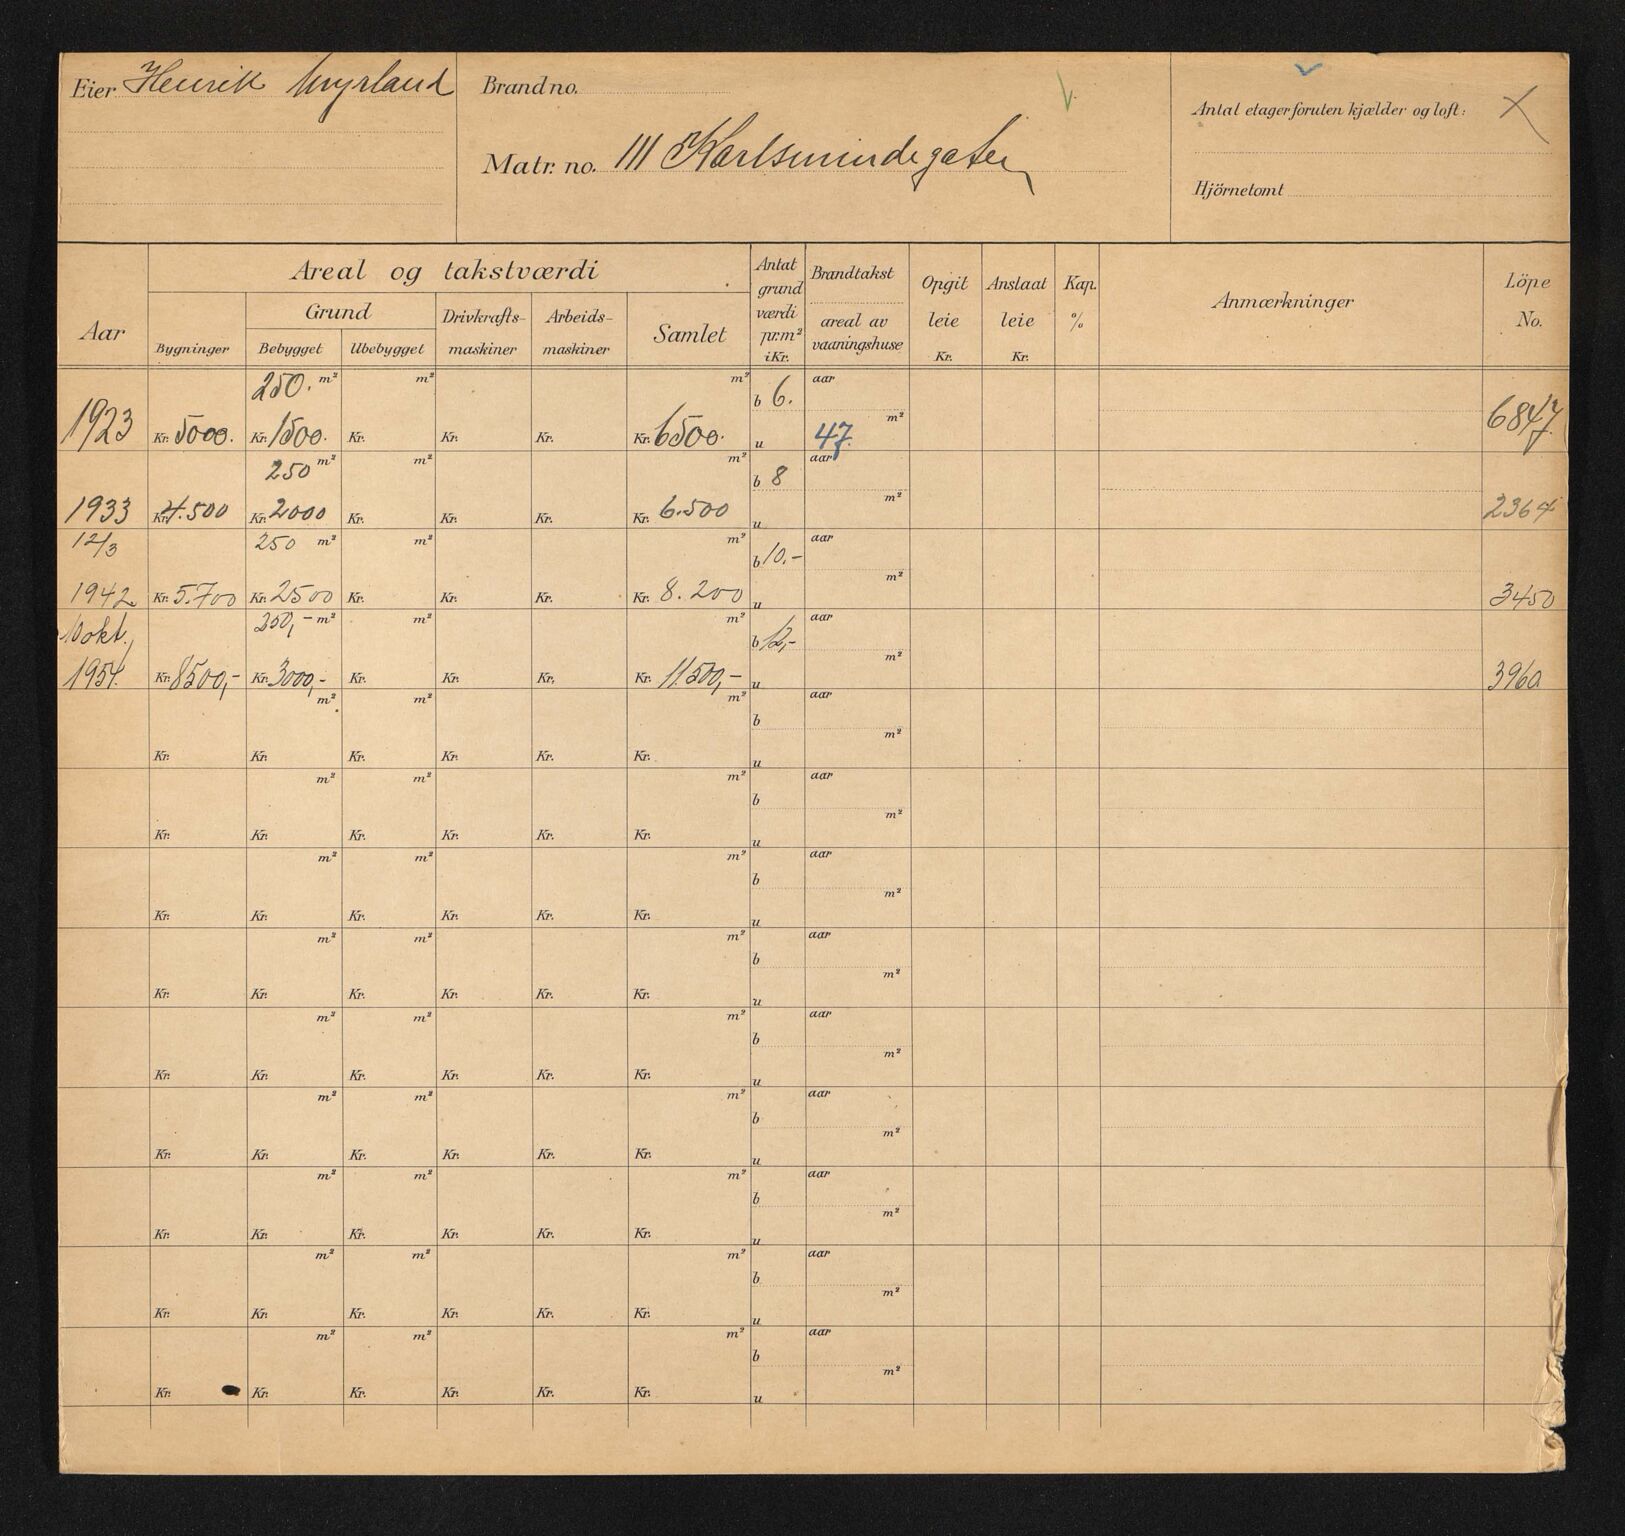 Eier Henrik Myrland
Brand no.
Matr. no. 111 Karlsmindegaten
Antal etager foruten kjælder og loft: X
Hjörnetomt
Aar
Areal og takstværdi
Bygninger
Grund
Bebygget
Ubebygget
Drivkrafts-
maskiner
Arbeids-
maskiner
Samlet
Antat
grund
værdi
pr. m²
i Kr.
Brandtakst
areal av
vaaningshuse
Opgit
leie
Kr.
Anslaat
leie
Kr.
Kap.
%
Anmærkninger
Löpe
No.
250. m² m² m² b 6. aar
1923 Kr. 5000. Kr. 1500. Kr. Kr. Kr. Kr. 6500. u 47. m² 6847.
250 m² m² m² b 8 aar
1933 Kr. 4.500 Kr. 2000 Kr. Kr. Kr. Kr. 6.500 u m² 2364
12/3 250 m² m² m² b 10.- aar
1942 Kr. 5.700 Kr. 2500 Kr. Kr. Kr. Kr. 8.200 u m² 3450
okt. 250,- m² m² m² b 12,- aar
1954. Kr. 8500,- Kr. 3000,- Kr. Kr. Kr. Kr. 11.500,- u m² 3960
m² m² m² b aar
Kr. Kr. Kr. Kr. Kr. Kr. u m²
m² m² m² b aar
Kr. Kr. Kr. Kr. Kr. Kr. u m²
m² m² m² b aar
Kr. Kr. Kr. Kr. Kr. Kr. u m²
m² m² m² b aar
Kr. Kr. Kr. Kr. Kr. Kr. u m²
m² m² m² b aar
Kr. Kr. Kr. Kr. Kr. Kr. u m²
m² m² m² b aar
Kr. Kr. Kr. Kr. Kr. Kr. u m²
m² m² m² b aar
Kr. Kr. Kr. Kr. Kr. Kr. u m²
m² m² m² b aar
Kr. Kr. Kr. Kr. Kr. Kr. u m²
m² m² m² b aar
Kr. Kr. Kr. Kr. Kr. Kr. u m²